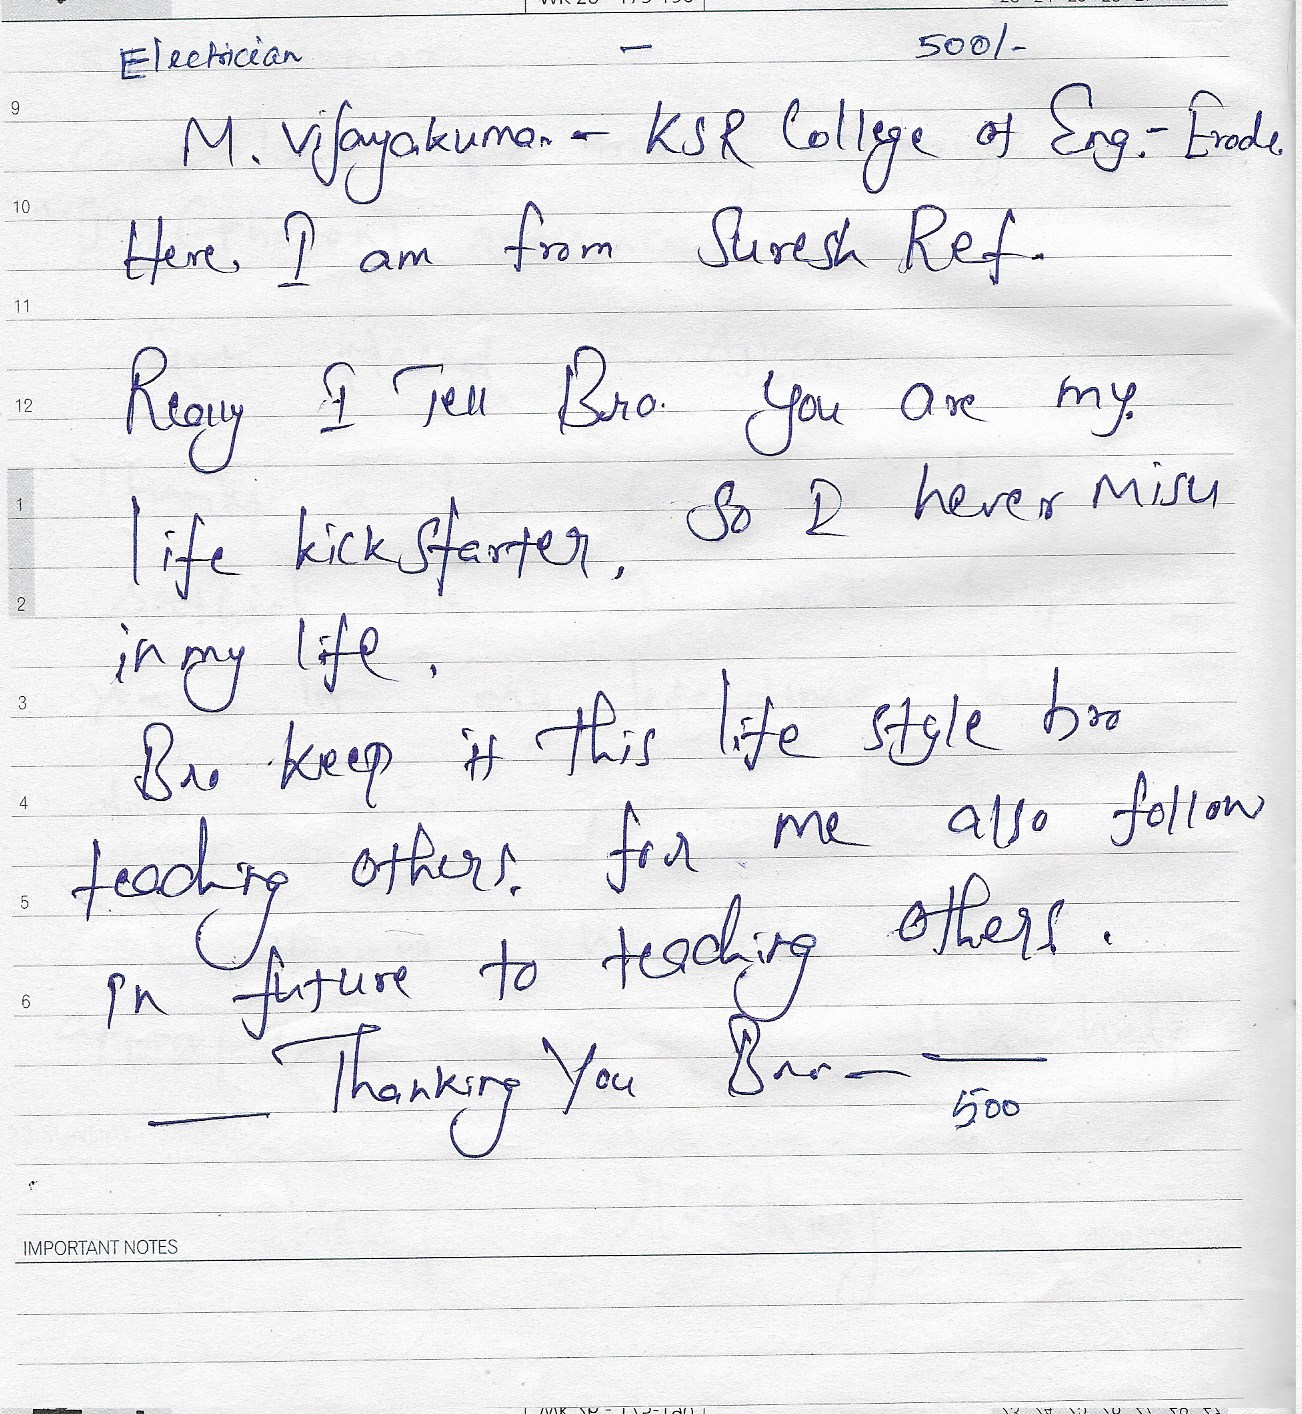 Electrician - 500/-
9
M. Vijayakumar - KSR College of Eng. - Erode.
10
Here, I am from Suresh Ref.
11
12 ReaUy I Tell Bro. You are my.
1 life kick starter, So I never Misu
2
in my life,
3
Bro keep it this life style bro
4
teaching others. for me also follow
5
in future to teaching others.
6
Thanking You Bro -
500
IMPORTANT NOTES